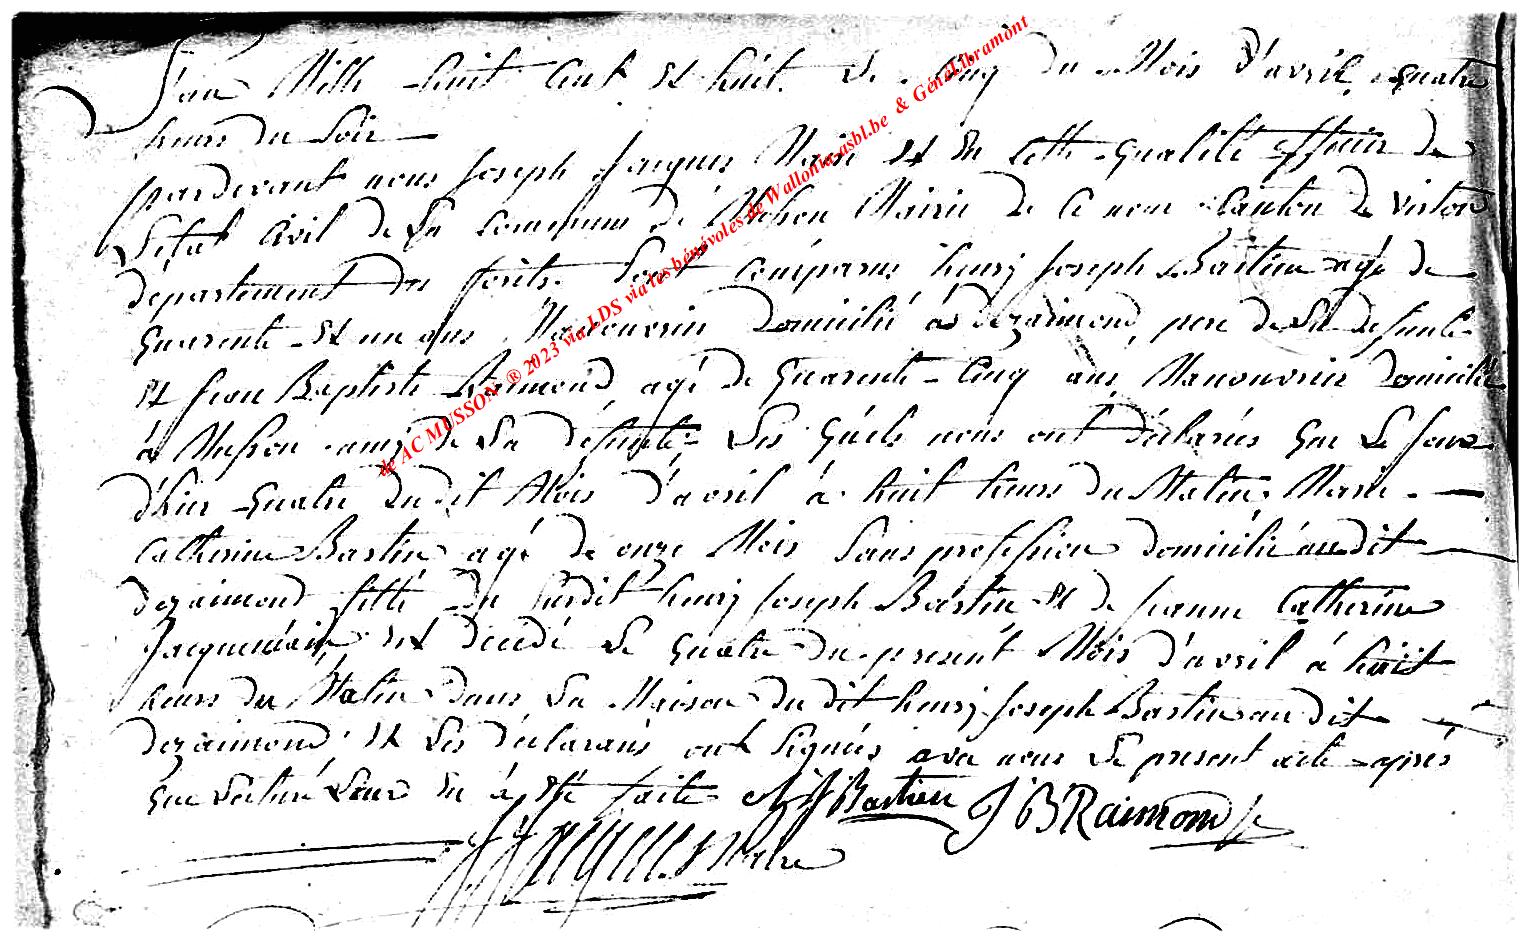 L'an Mille huit Cent et huit. Le Cinq du Mois d'avril, quatre
heurs du Soir
pardevant nous Joseph Jacques Maire et en cette qualité officier de
L'etat Civil de La Commune de Musson Mairie de Ce nom Canton de virton
département des forêts. Sont Comparus henry Joseph Bastien agé de
quarente et un ans Manouvrier domicilié à dezaimond, pere de La defunte
et Jean Baptiste Raimond, agé de quarente-Cinq ans, Manouvrier domicilié
à Musson amis de La défunte, Les quels nous ont déclarés que Le Jour
d'hier quatre dudit Mois d'avril à huit heurs du Matin, Marie
Catherine Bastien agé de onze Mois Sans profession domicilié audit
dezaimond fille du Susdit henry Joseph Bastien et de Jeanne Catherine
Jacquemain, est decedé Le quatre du present Mois d'avril à huit
heurs du Matin dans La Maison du dit henry Joseph Bastien au dit
dezaimond et Les déclarans ont Signés avec nous Le present acte après
que Lecture Leur en à été faite H J Bastien J B Raimond
J J Jacques Maire
de AC MUSSON ® 2023 via LDS via les bénévoles de Wallonia-asbl.be & GénéaLibramont